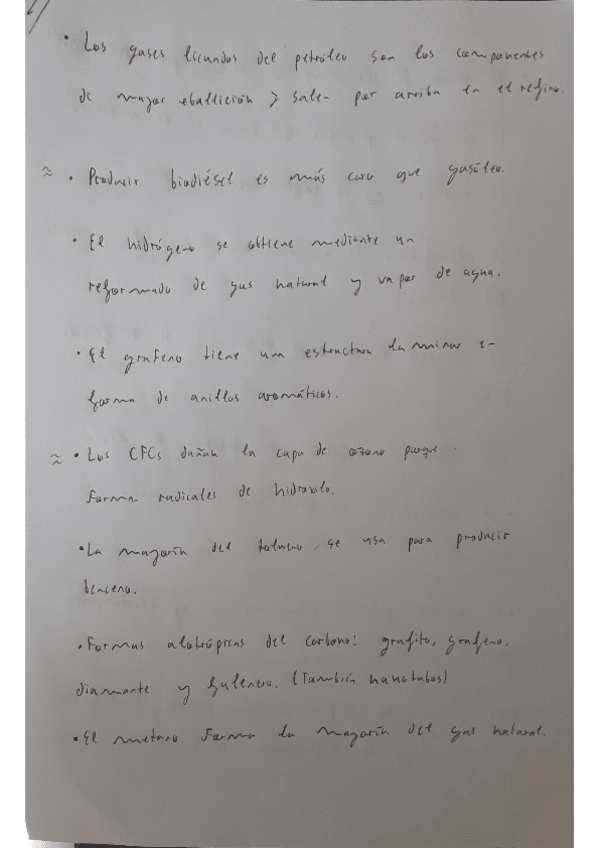 • Los gases licuados del petróleo son los componentes
de mayor ebullición y salen por arriba en el refino.
≈ • Producir biodiésel es más caro que gasóleo.
• El hidrógeno se obtiene mediante un
reformado de gas natural y vapor de agua.
• El grafeno tiene una estructura laminar en
forma de anillos aromáticos.
≈ • Los CFCs dañan la capa de ozono porque
forman radicales de hidroxilo.
• La mayoría del tolueno, se usa para producir
benceno.
• Formas alotrópicas del carbono: grafito, grafeno,
diamante y fulereno. (También nanotubos)
• El metano forma la mayoría del gas natural.